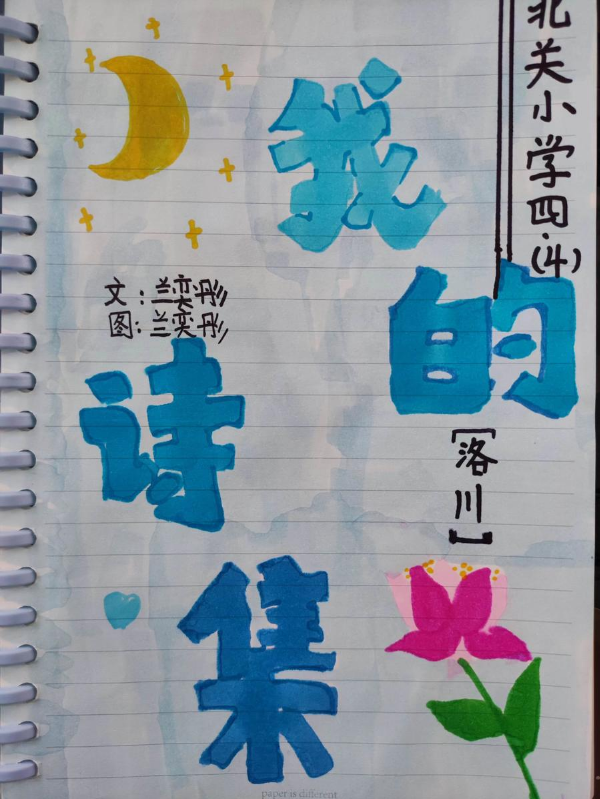 北关小学四.(4)
我
的
诗
集
文:兰奕彤
图:兰奕彤
[洛川]
paper is different